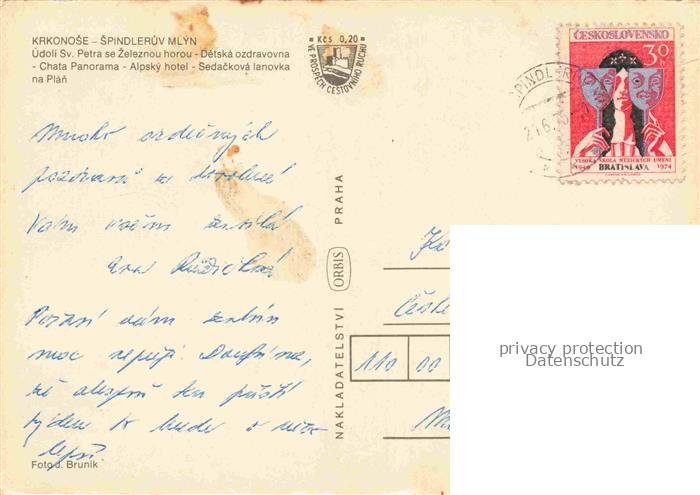 KRKONOŠE – ŠPINDLERŮV MLÝN
Údolí Sv. Petra se Železnou horou - Dětská ozdravovna
- Chata Panorama - Alpský hotel - Sedačková lanovka
na Pláň
Kčs 0,20
VE PROSPĚCH CESTOVNÍHO RUCHU
ČESKOSLOVENSKO
30 h
VYSOKÁ ŠKOLA MÚZICKÝCH UMENÍ
1949 BRATISLAVA 1974
Mnoho srdečných
pozdravů z dovolené
Vám všem zasílá
Eva
Počasí nám zatím
moc nepřeje. Doufáme,
že alespoň ten příští
týden to bude o něco
lepší.
Foto J. Bruník
NAKLADATELSTVÍ ORBIS PRAHA
České
110 00
privacy protection
Datenschutz